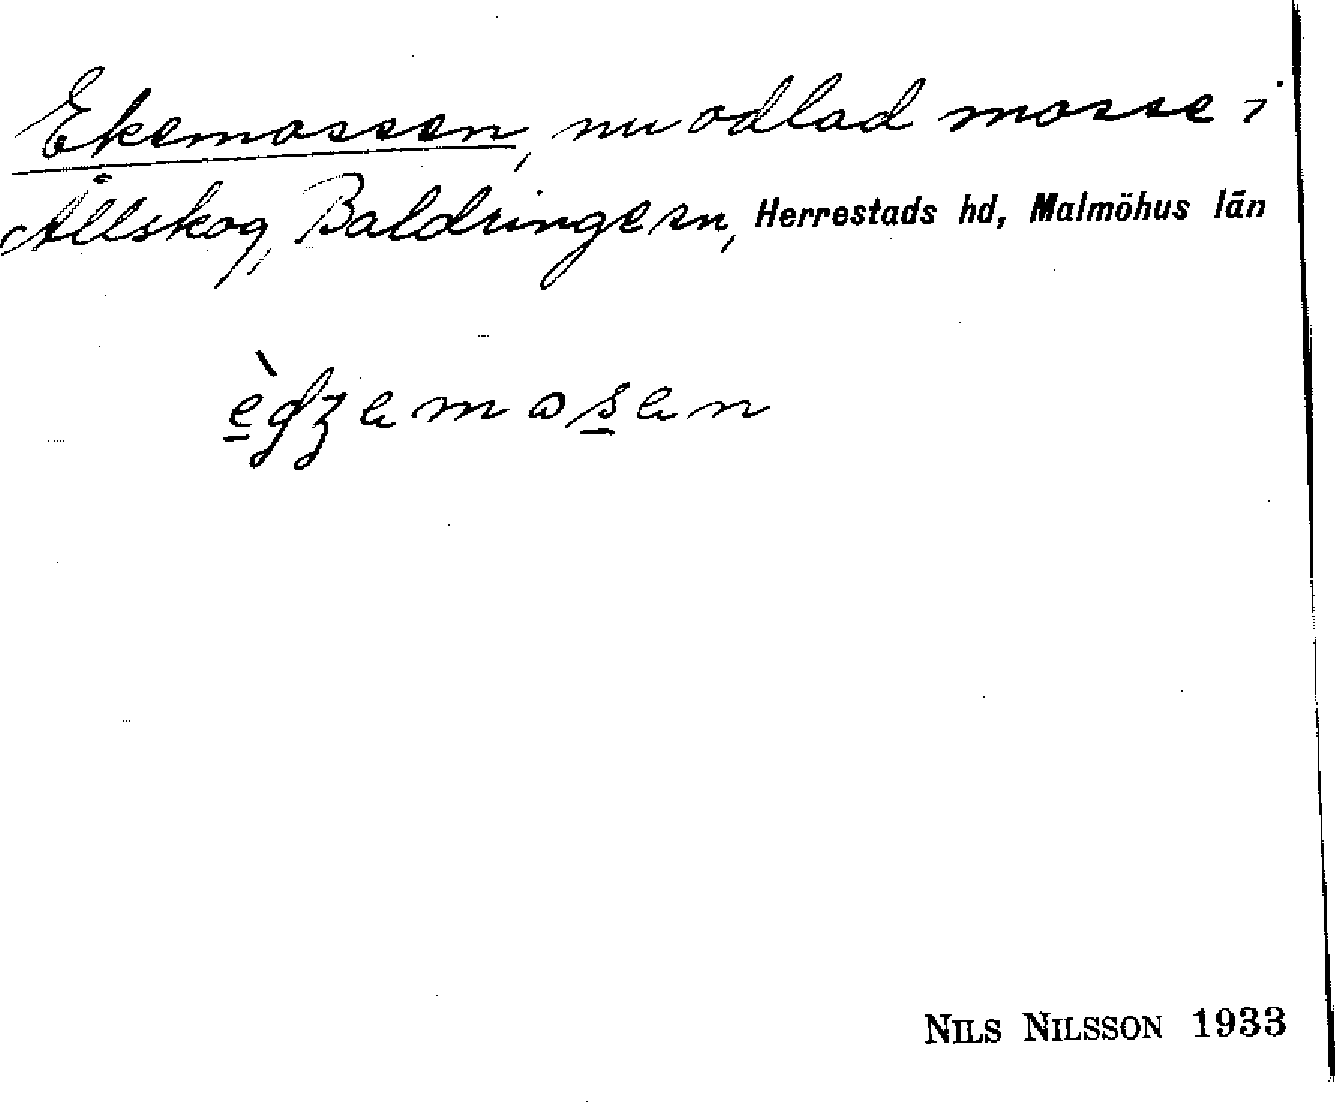 Ekemossen, nu odlad mosse i
Ållskog, Baldringe sn, Herrestads hd, Malmöhus län
Nils Nilsson 1933